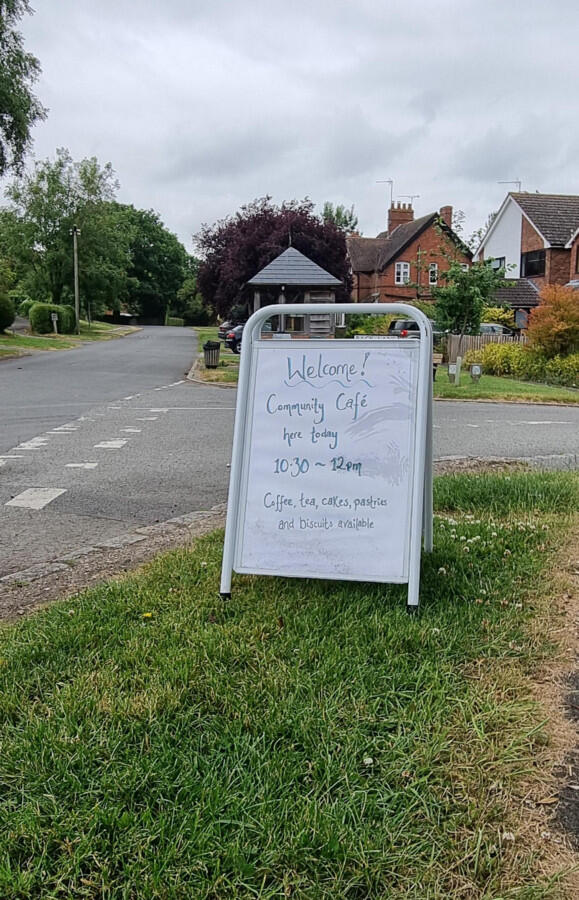 Welcome!
Community Café
here today
10.30 ~ 12pm
Coffee, tea, cakes, pastries
and biscuits available